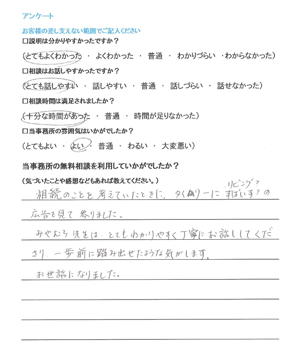 アンケート
お客様の差し支えない範囲でご記入ください
□説明は分かりやすかったですか？
(とてもよくわかった ・ よくわかった ・ 普通 ・ わかりづらい ・わからなかった)
□相談はお話しやすかったですか？
(とても話しやすい ・ 話しやすい ・ 普通 ・ 話しづらい ・ 話せなかった)
□相談時間は満足されましたか？
(十分な時間があった ・ 普通 ・ 時間が足りなかった)
□当事務所の雰囲気はいかがでしたか？
(とてもよい ・ よい ・ 普通 ・ わるい ・ 大変悪い)
当事務所の無料相談を利用していかがでしたか？
(気づいたことや感想などもあれば教えてください。)
リビング？
相続のことを考えていたときに、タイムリーに すばいす？の
広告を見て参りました。
先生は、とてもわかりやすく丁寧にお話ししてくだ
さり、一歩前に踏み出せたような気がします。
お世話になりました。